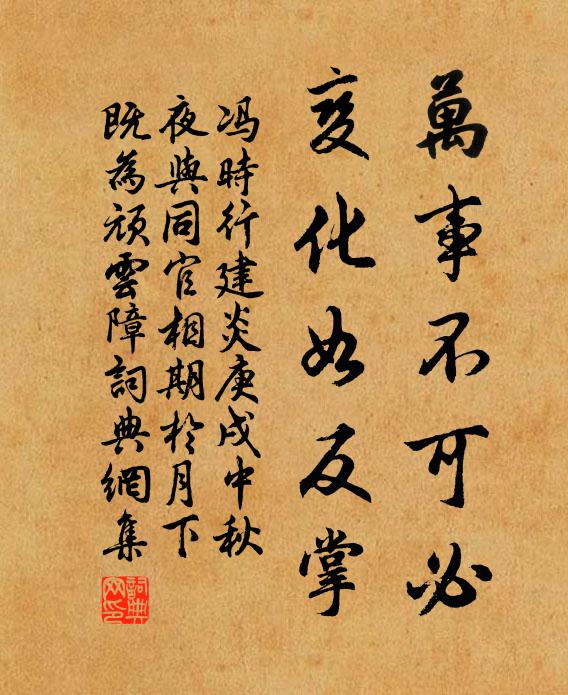 萬事不可必
变化如反掌
冯時行建炎庚戌中秋
夜與同官相期於月下
既為頑雲障詞典網集
詞典网印